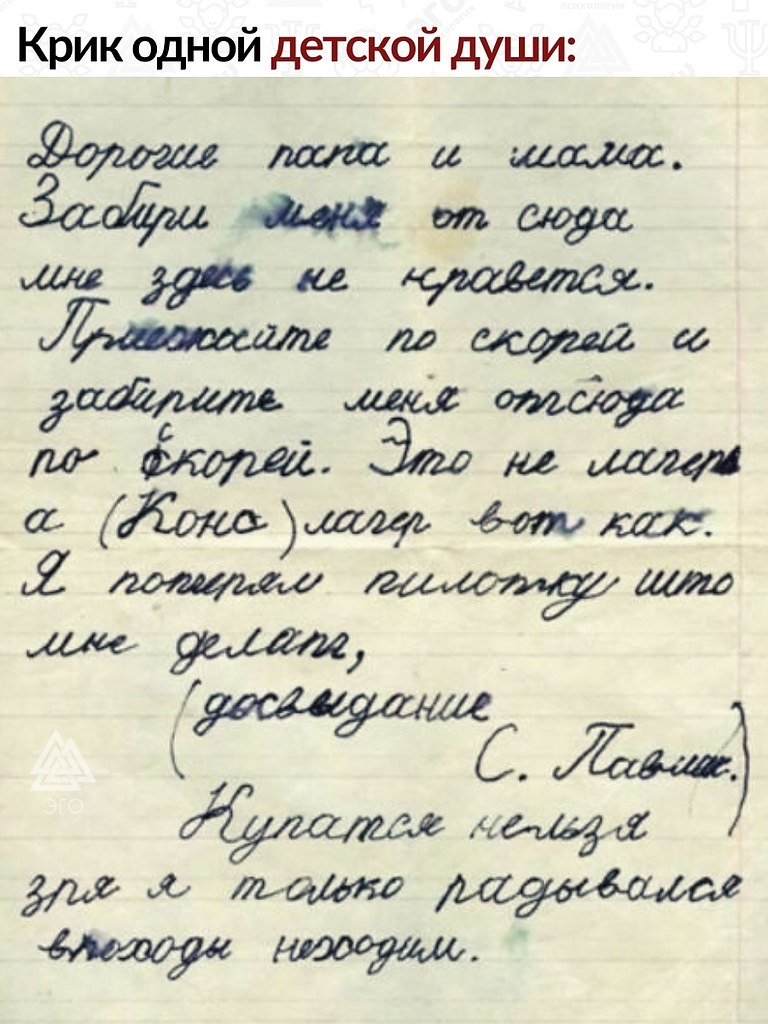 Крик одной детской души:
Дорогие папа и мама.
Забири меня от сюда
мне здесь не нравется.
Приезжайте по скорей и
забирите меня отсюда
по скорей. Это не лагерь
а (Конс) лагер вот как.
Я потерял пилотку што
мне делат,
(досвыдание
С. Павлик.)
Купатся нельзя
зря я только радывался
впоходы неходим.
ЭГО